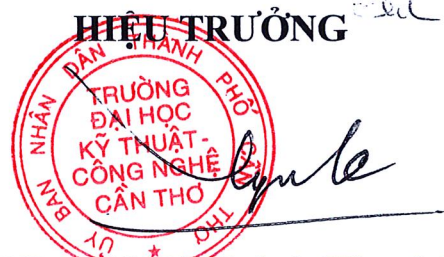 HIỆU TRƯỞNG
ỦY BAN NHÂN DÂN THÀNH PHỐ CẦN THƠ
TRƯỜNG
ĐẠI HỌC
KỸ THUẬT-
CÔNG NGHỆ
CẦN THƠ